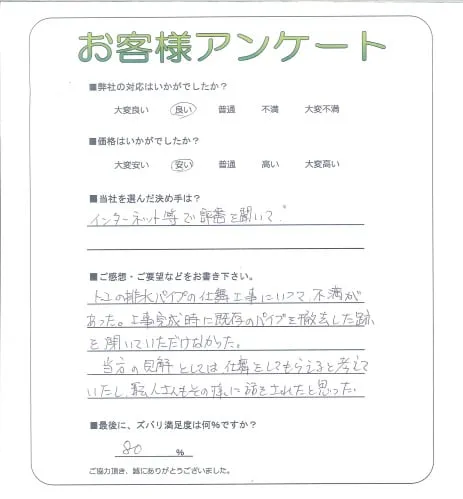 お客様アンケート
■弊社の対応はいかがでしたか？
大変良い 良い 普通 不満 大変不満
■価格はいかがでしたか？
大変安い 安い 普通 高い 大変高い
■当社を選んだ決め手は？
インターネット等で評番を聞いて。
■ご感想・ご要望などをお書き下さい。
トユの排水パイプの仕舞工事について、不満が
あった。工事完成時に既存のパイプを撤去した跡
を聞いていただけなかった。
当方の見解としては仕舞をしてもらえると考えて
いたし、職人さんもその様に話をされたと思った。
■最後に、ズバリ満足度は何％ですか？
80 ％
ご協力頂き、誠にありがとうございました。